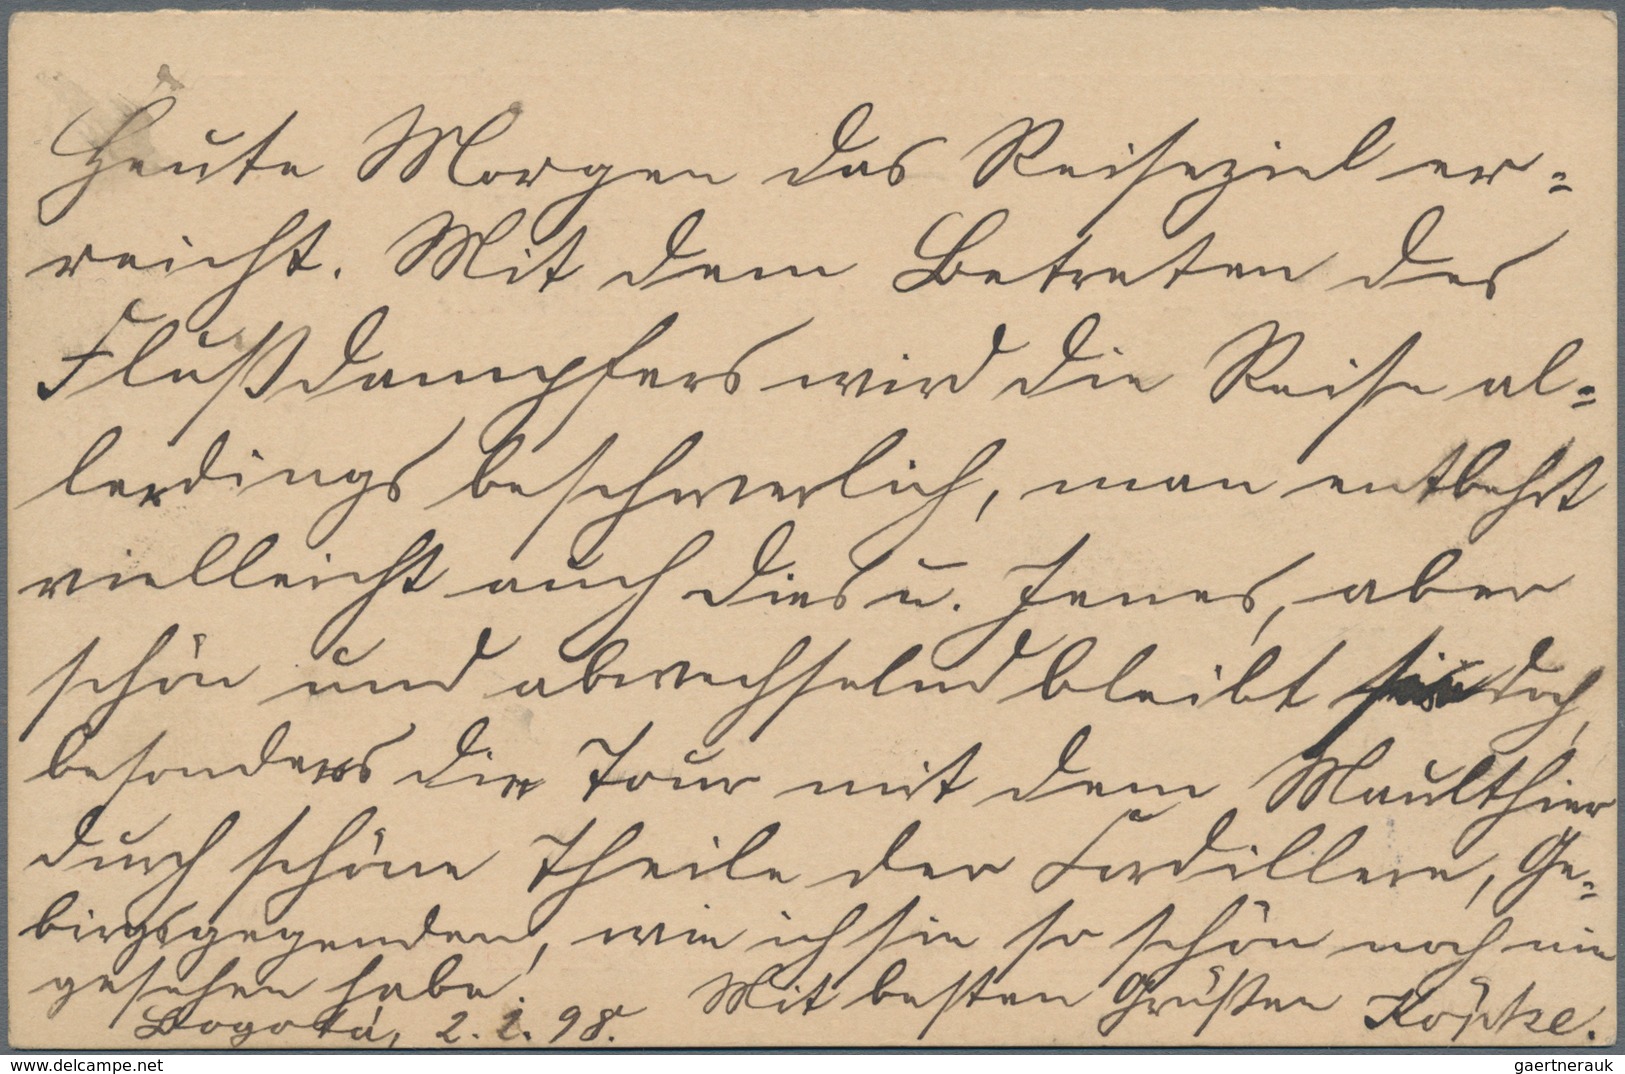 Heute Morgen das Reiseziel er=
reicht. Mit dem Betreten des
Flußdampfers wird die Reise al=
lerdings beschwerlich, man entbehrt
vielleicht auch dies u. Jenes, aber
schön und abwechselnd bleibt sie doch,
besonders die Tour mit dem Maulthier
durch schöne Theile der Cordilleren, Ge=
birgsgegenden, wie ich sie so schön noch nie
gesehen habe.
Mit besten Grüßen Köpke.
Bogotá, 2. 2. 98.
www.delcampe.net
gaertnerauk